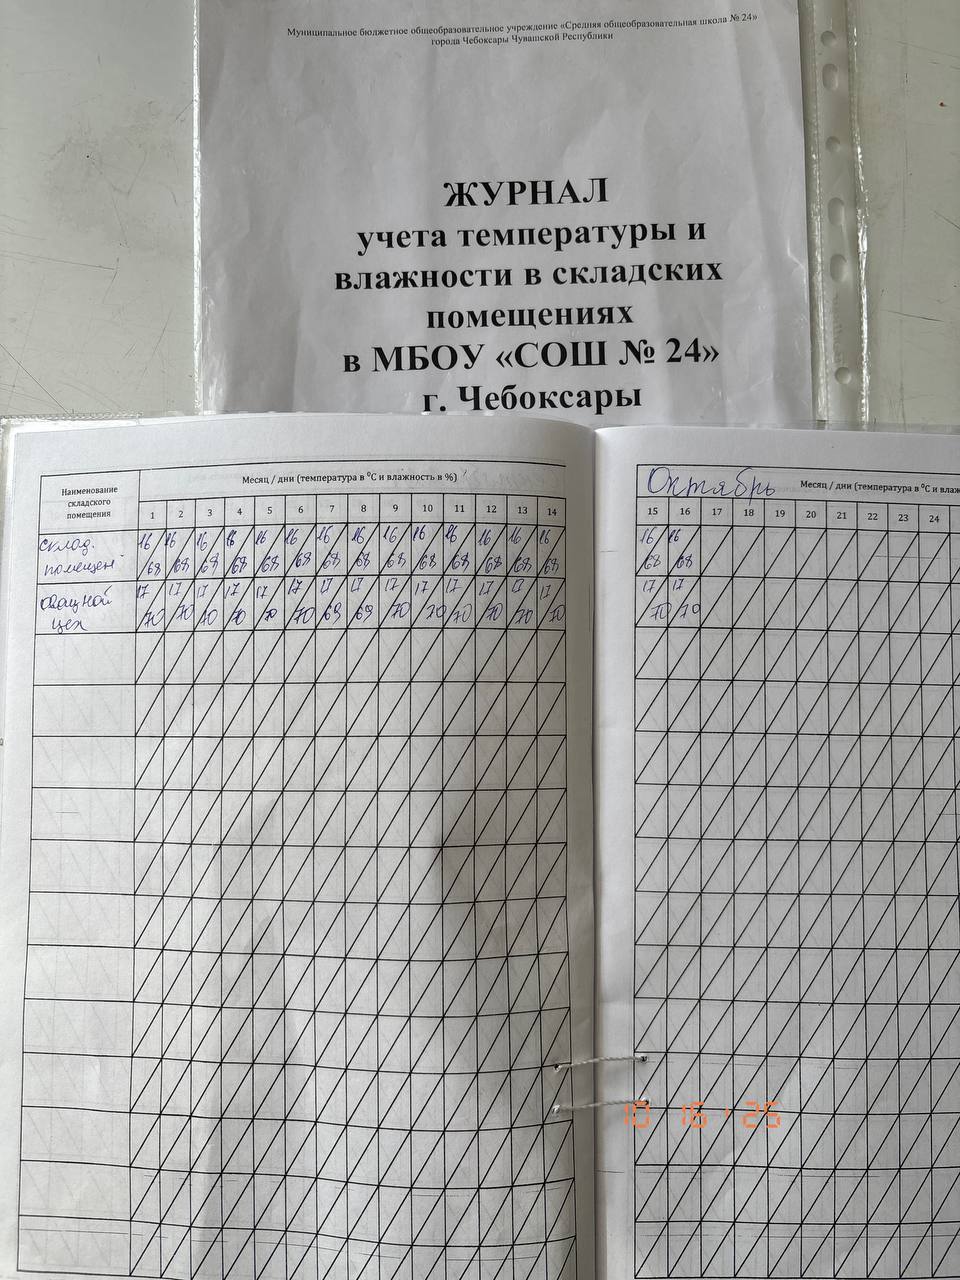 Муниципальное бюджетное общеобразовательное учреждение «Средняя общеобразовательная школа № 24»
города Чебоксары Чувашской Республики
ЖУРНАЛ
учета температуры и
влажности в складских
помещениях
в МБОУ «СОШ № 24»
г. Чебоксары
Наименование складского помещения
Месяц / дни (температура в °С и влажность в %)
1 2 3 4 5 6 7 8 9 10 11 12 13 14
склад. 16 16 16 16 16 16 16 16 16 16 16 16 16 16
помещен 68 68 68 68 68 68 68 68 68 68 68 68 68 68
овощной 17 17 17 17 17 17 17 17 17 17 17 17 17 17
цех 70 70 70 70 70 70 69 69 70 70 70 70 70 70
Октябрь Месяц / дни (температура в °С и влаж
15 16 17 18 19 20 21 22 23 24
16 16
68 68
17 17
70 70
10 16 ' 25